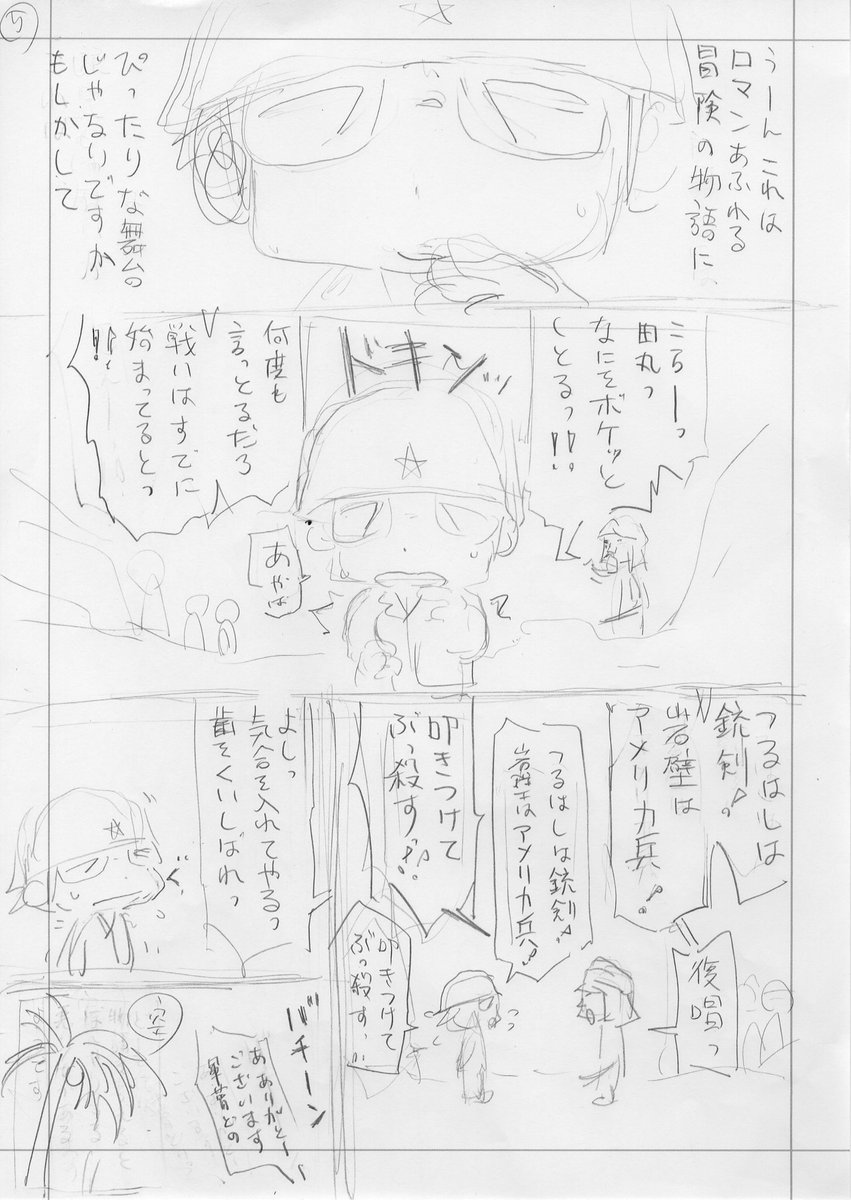 5
うーんこれは
ロマンあふれる
冒険の物語に
ぴったりな舞台の
じゃないですか
もしかして
こらーっ
田丸っ
なにをボケッと
しとるっ!!
ドキンッ
何度も
言っとるだろ
戦いはすでに
始まってるとっ
!!
あかは
つるはしは
銃剣!
岩壁は
アメリカ兵!
叩きつけて
ぶっ殺すっ!!
復唱っ
つるはしは銃剣!
岩壁はアメリカ兵!
叩きつけて
ぶっ殺すっ
よしっ
気合を入れてやるっ
歯をくいしばれっ
バチーン
あありがとー
ございます
軍曹どの
空